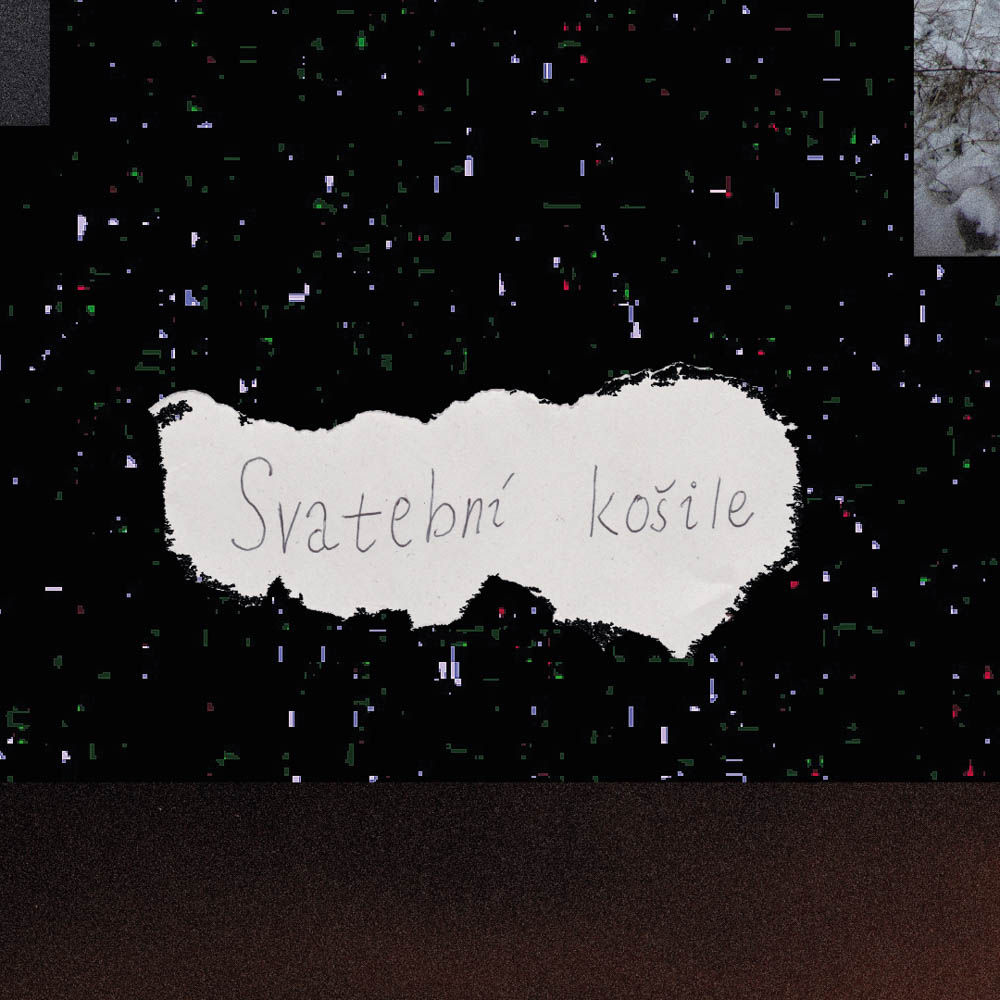 Svatební košile